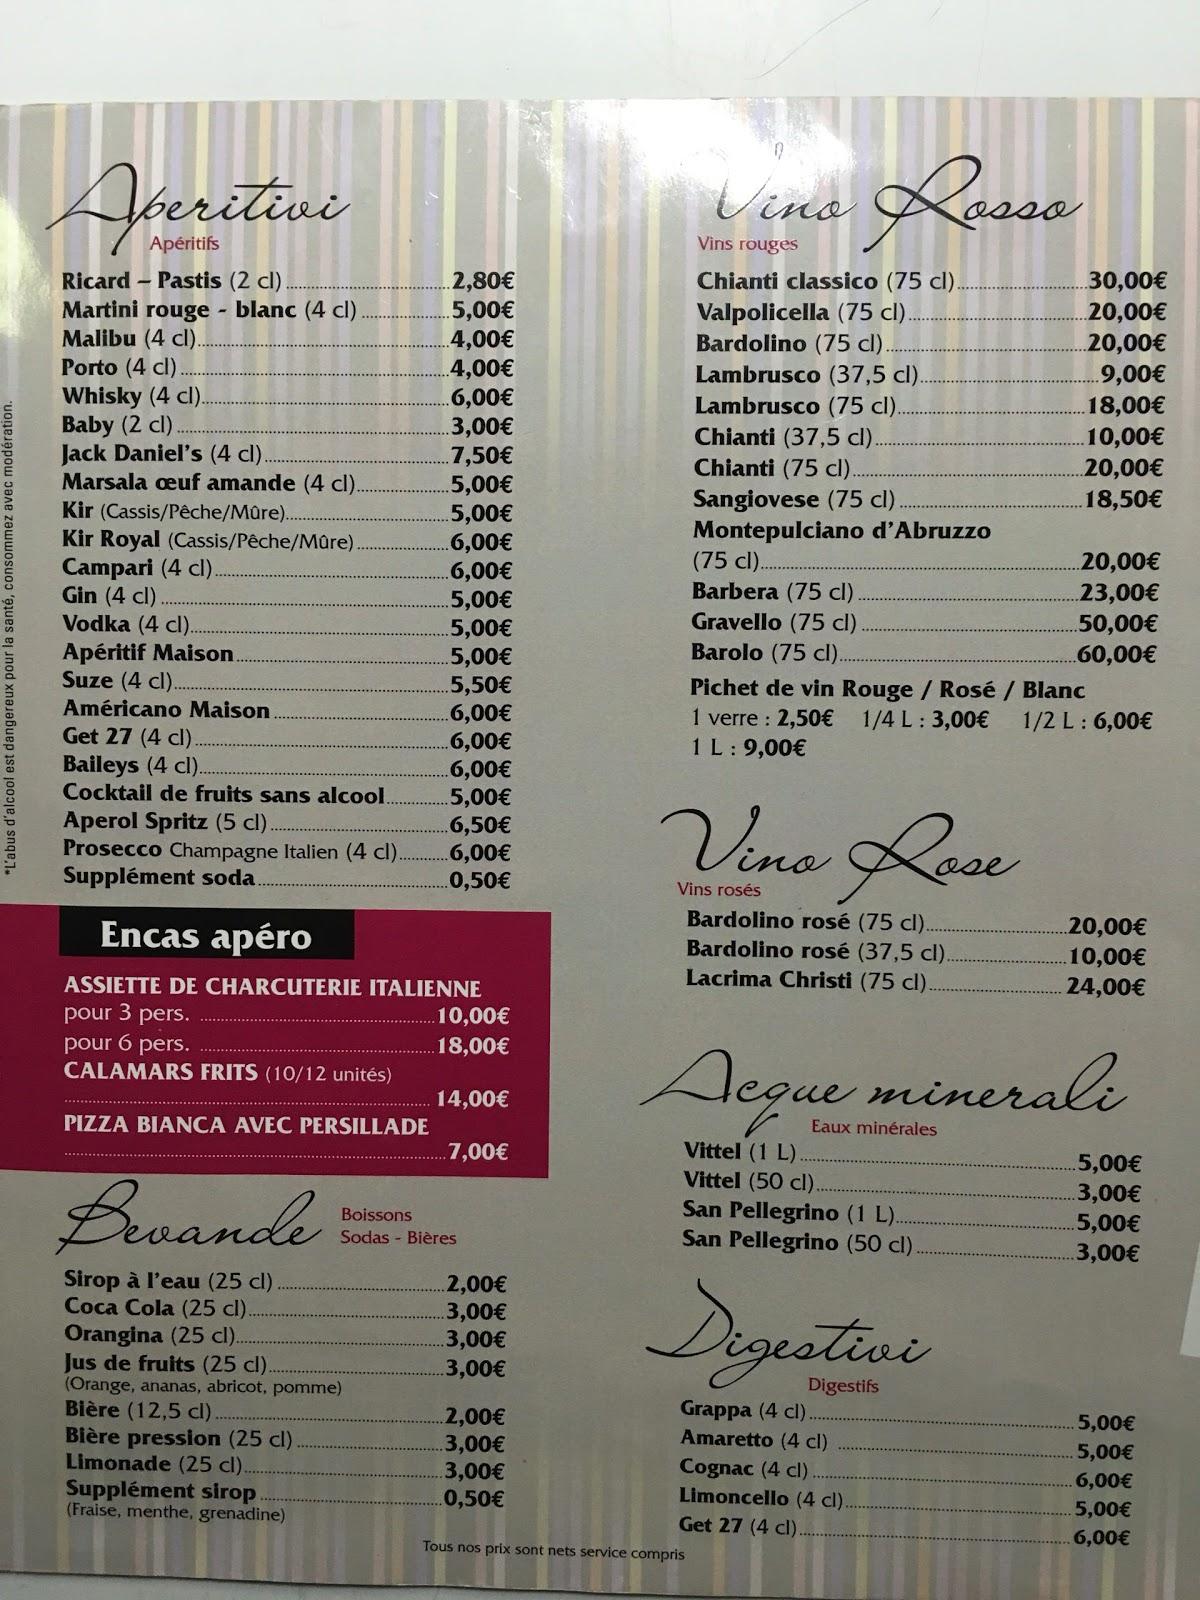 Aperitivi
Apéritifs
Ricard – Pastis (2 cl) 2,80€
Martini rouge - blanc (4 cl) 5,00€
Malibu (4 cl) 4,00€
Porto (4 cl) 4,00€
Whisky (4 cl) 6,00€
Baby (2 cl) 3,00€
Jack Daniel's (4 cl) 7,50€
Marsala œuf amande (4 cl) 5,00€
Kir (Cassis/Pêche/Mûre) 5,00€
Kir Royal (Cassis/Pêche/Mûre) 6,00€
Campari (4 cl) 6,00€
Gin (4 cl) 5,00€
Vodka (4 cl) 5,00€
Apéritif Maison 5,00€
Suze (4 cl) 5,50€
Américano Maison 6,00€
Get 27 (4 cl) 6,00€
Baileys (4 cl) 6,00€
Cocktail de fruits sans alcool 5,00€
Aperol Spritz (5 cl) 6,50€
Prosecco Champagne Italien (4 cl) 6,00€
Supplément soda 0,50€
*L'abus d'alcool est dangereux pour la santé, consommez avec modération.
Encas apéro
ASSIETTE DE CHARCUTERIE ITALIENNE
pour 3 pers. 10,00€
pour 6 pers. 18,00€
CALAMARS FRITS (10/12 unités)
14,00€
PIZZA BIANCA AVEC PERSILLADE
7,00€
Bevande
Boissons
Sodas - Bières
Sirop à l'eau (25 cl) 2,00€
Coca Cola (25 cl) 3,00€
Orangina (25 cl) 3,00€
Jus de fruits (25 cl) 3,00€
(Orange, ananas, abricot, pomme)
Bière (12,5 cl) 2,00€
Bière pression (25 cl) 3,00€
Limonade (25 cl) 3,00€
Supplément sirop 0,50€
(Fraise, menthe, grenadine)
Vino Rosso
Vins rouges
Chianti classico (75 cl) 30,00€
Valpolicella (75 cl) 20,00€
Bardolino (75 cl) 20,00€
Lambrusco (37,5 cl) 9,00€
Lambrusco (75 cl) 18,00€
Chianti (37,5 cl) 10,00€
Chianti (75 cl) 20,00€
Sangiovese (75 cl) 18,50€
Montepulciano d'Abruzzo
(75 cl) 20,00€
Barbera (75 cl) 23,00€
Gravello (75 cl) 50,00€
Barolo (75 cl) 60,00€
Pichet de vin Rouge / Rosé / Blanc
1 verre : 2,50€ 1/4 L : 3,00€ 1/2 L : 6,00€
1 L : 9,00€
Vino Rose
Vins rosés
Bardolino rosé (75 cl) 20,00€
Bardolino rosé (37,5 cl) 10,00€
Lacrima Christi (75 cl) 24,00€
Acque minerali
Eaux minérales
Vittel (1 L) 5,00€
Vittel (50 cl) 3,00€
San Pellegrino (1 L) 5,00€
San Pellegrino (50 cl) 3,00€
Digestivi
Digestifs
Grappa (4 cl) 5,00€
Amaretto (4 cl) 5,00€
Cognac (4 cl) 6,00€
Limoncello (4 cl) 5,00€
Get 27 (4 cl) 6,00€
Tous nos prix sont nets service compris